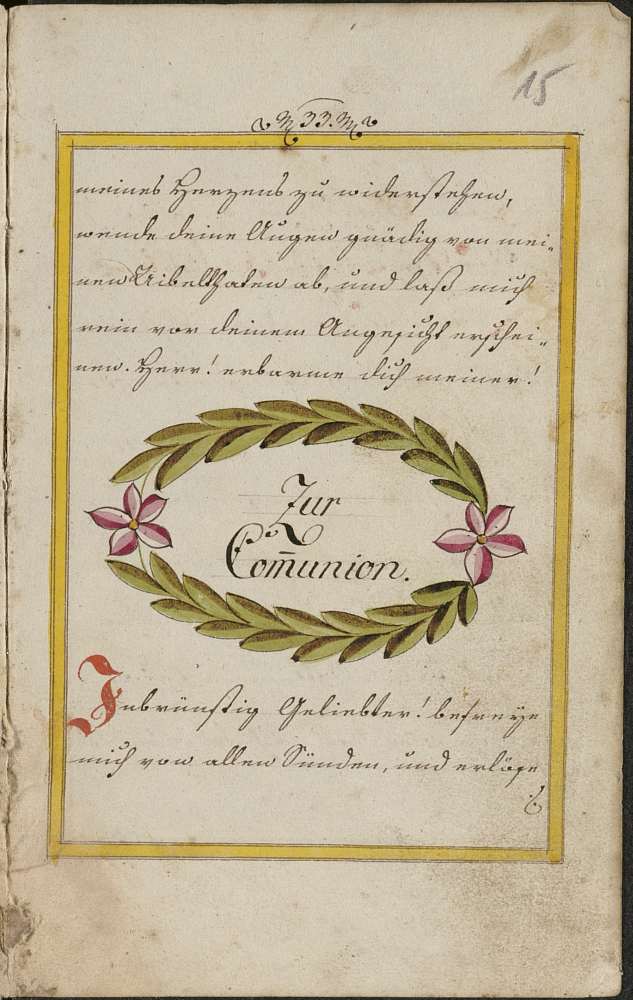 15
33.
meines Herzens zu widerstehen,
wende deine Augen gnädig von mei„
nen Uibelthaten ab, und laß mich
rein vor deinem Angesicht erschei„
nen. Herr! erbarme dich meiner!
Zur
Com̅union.
Inbrünstig Geliebter! befreye
mich von allen Sünden, und erlöse